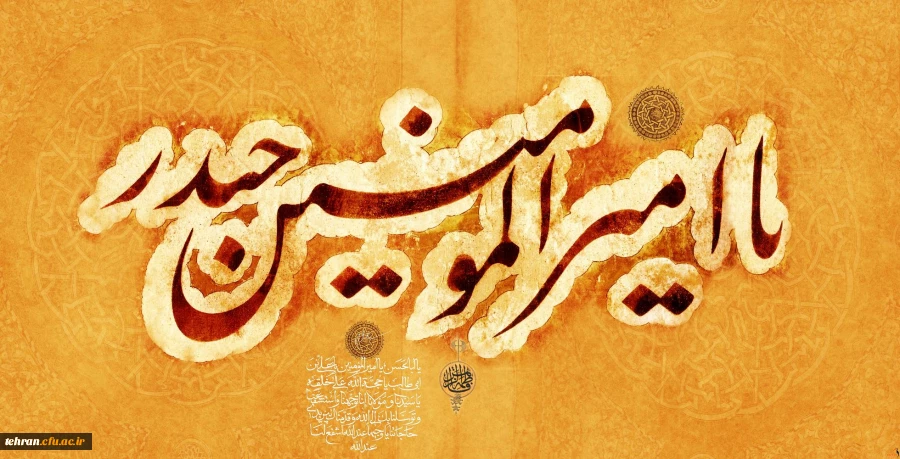 یا امیرالمومنین حیدر
یا اباالحسن یا امیرالمؤمنین یا علی بن
ابی طالب یا حجة الله علی خلقه
یا سیدنا و مولانا انا توجهنا واستشفعنا
و توسلنا بک الی الله و قدمناک بین یدی
حاجاتنا یا وجیها عندالله اشفع لنا
عندالله
tehran.cfu.ac.ir